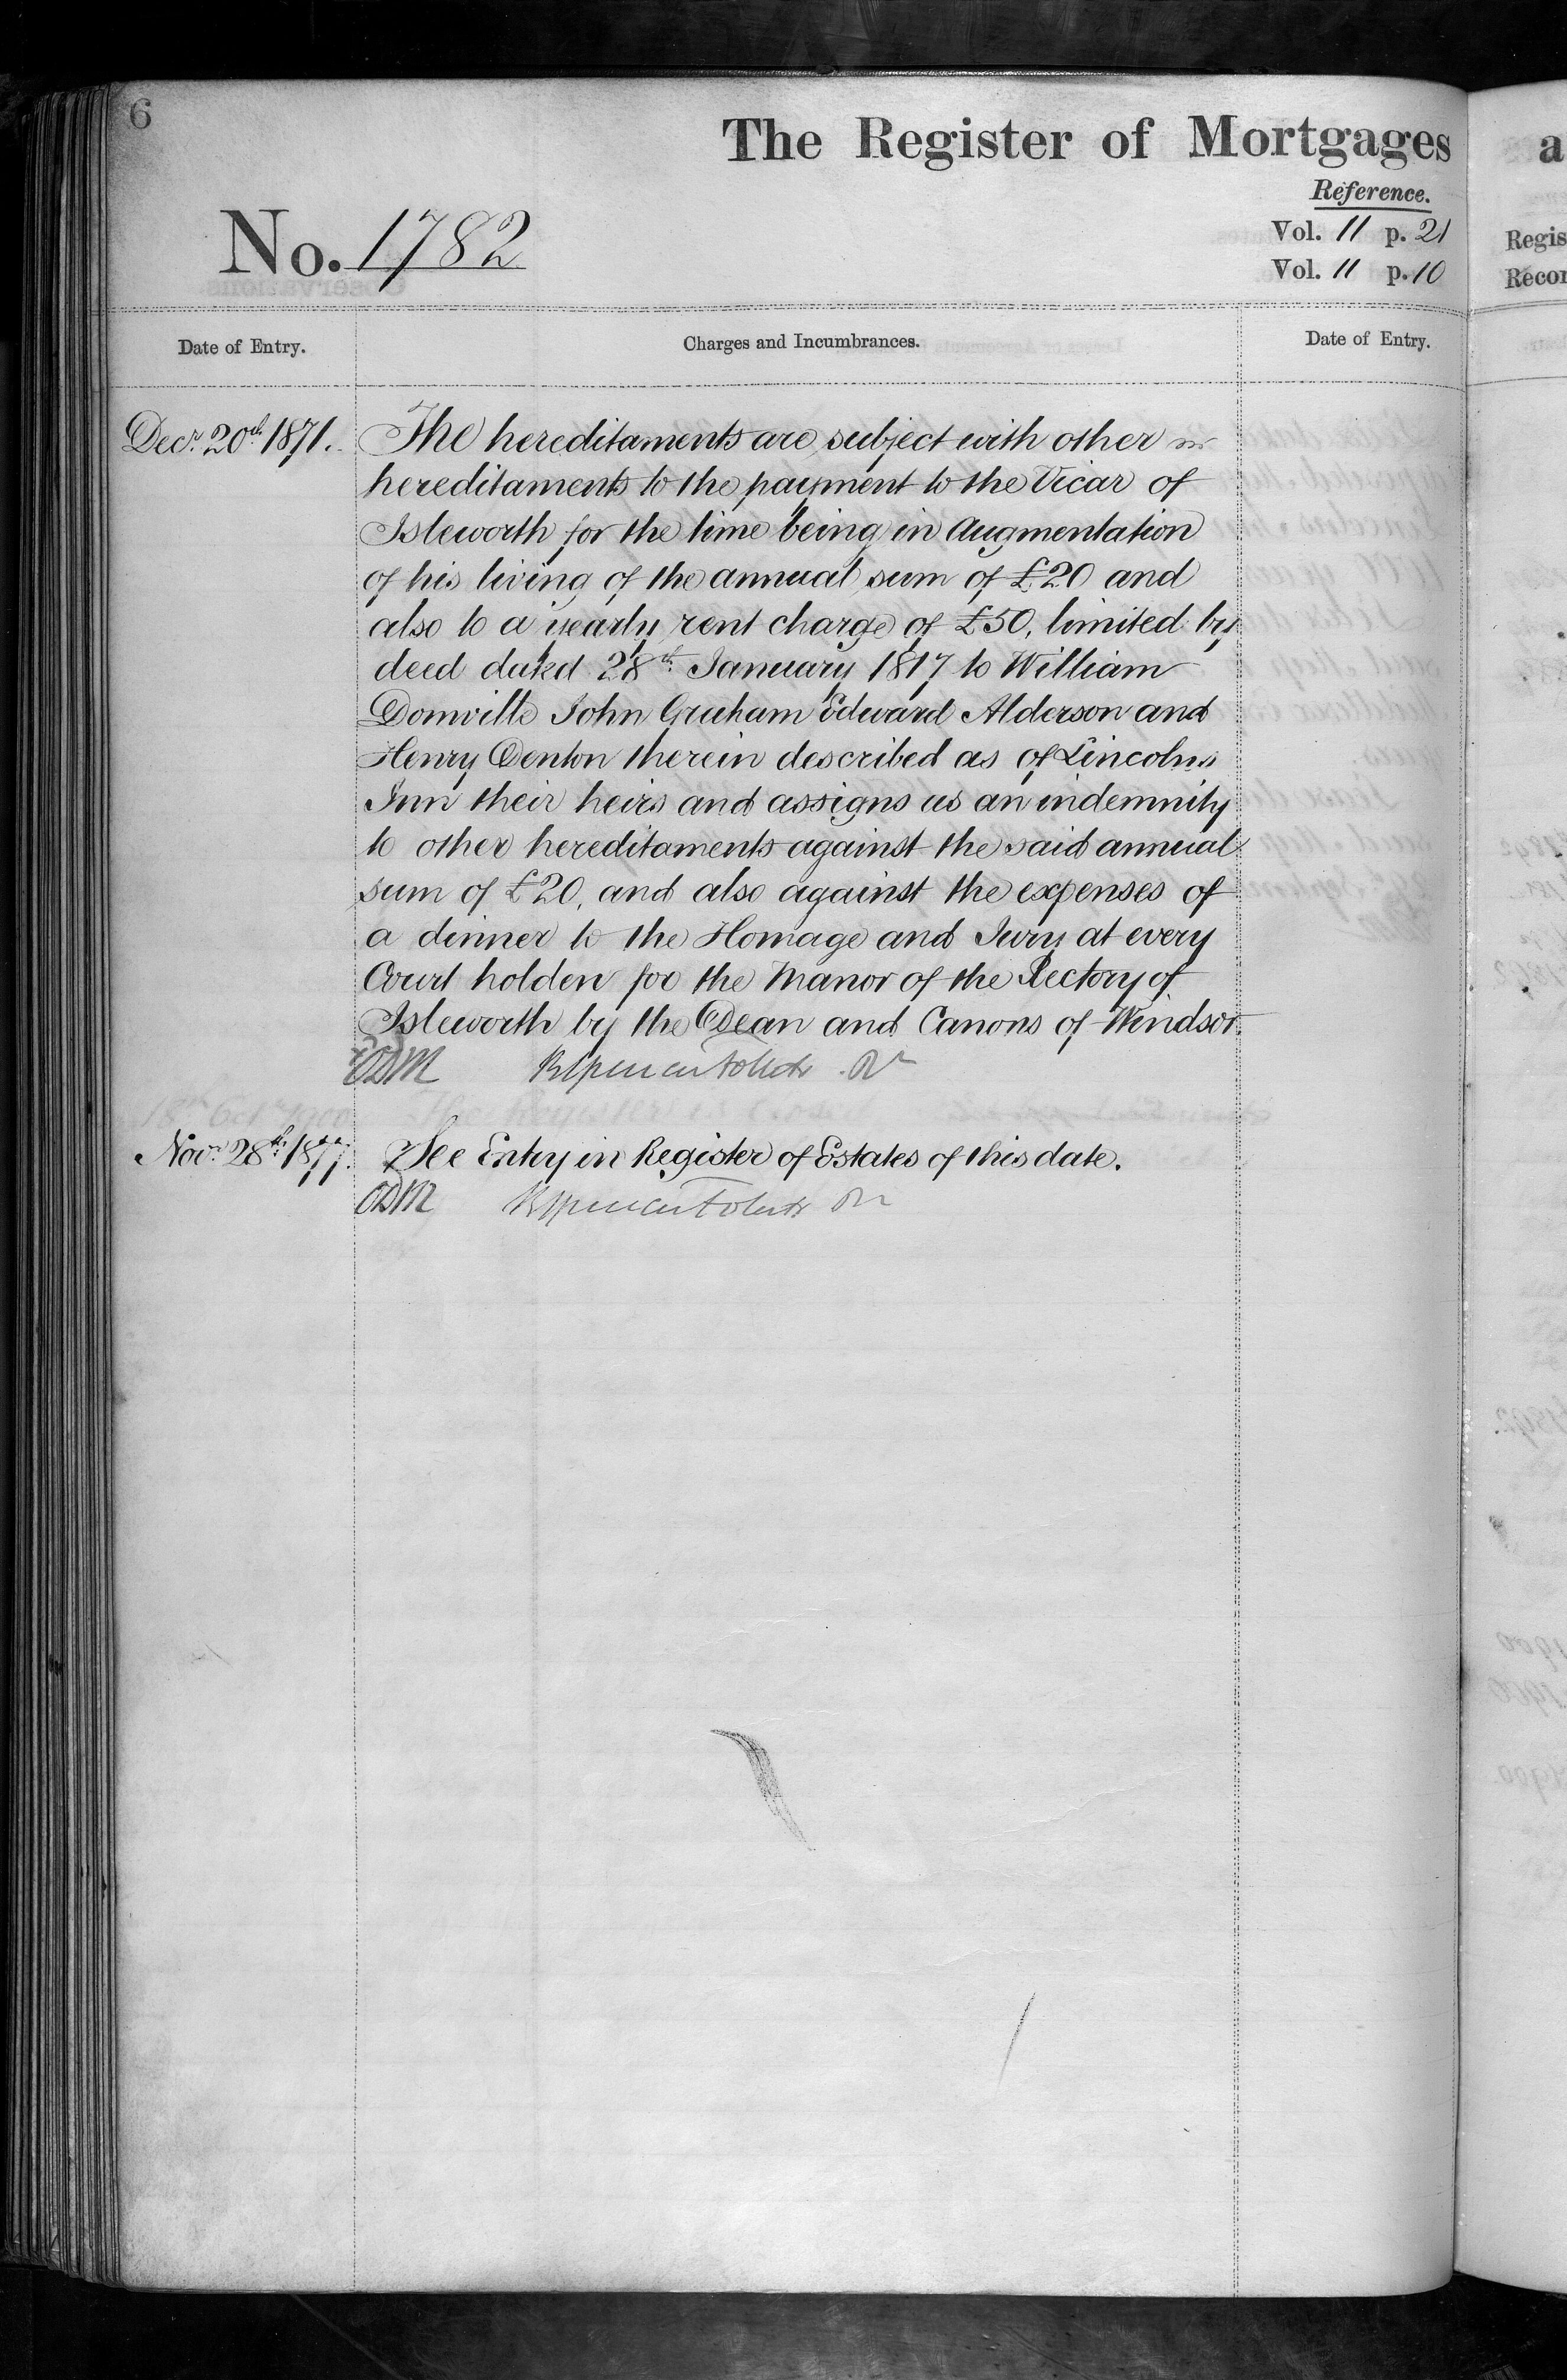 6
The Register of Mortgages
Reference.
No. 1782
Vol. 11 p. 21
Vol. 11 p. 10
Date of Entry.
Charges and Incumbrances.
Date of Entry.
Decr. 20th 1871.
The hereditaments are subject with other
hereditaments to the payment to the Vicar of
Isleworth for the time being in Augmentation
of his living of the annual sum of £20 and
also to a yearly rent charge of £50, limited by
deed dated 28th January 1817 to William
Domville John Graham Edward Alderson and
Henry Denton therein described as of Lincolns
Inn their heirs and assigns as an indemnity
to other hereditaments against the said annual
sum of £20, and also against the expenses of
a dinner to the Homage and Jury at every
Court holden for the Manor of the Rectory of
Isleworth by the Dean and Canons of Windsor.
ODM
18th Octr 1900 The Register is closed
Novr. 28th 1877. See Entry in Register of Estates of this date.
ODM
a
Regis
Recor